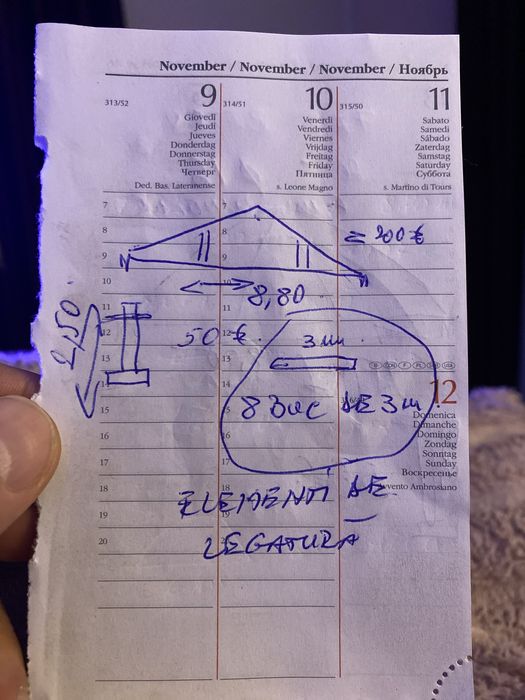 November / November / November / Ноябрь
313/52
9
Giovedì
Jeudi
Jueves
Donderdag
Donnerstag
Thursday
Четверг
Ded. Bas. Lateranense
314/51
10
Venerdì
Vendredi
Viernes
Vrijdag
Freitag
Friday
Пятница
s. Leone Magno
315/50
11
Sabato
Samedi
Sábado
Zaterdag
Samstag
Saturday
Суббота
s. Martino di Tours
7
7
8
8
= 200 €
9
9
10
8,80
11
11
2,50.
12
12
50 €.
3 m.
13
13
14
14
12
Domenica
Dimanche
Domingo
Zondag
Sonntag
Sunday
Воскресенье
Avvento Ambrosiano
15
8 Buc DE 3 m.
16
16
17
17
18
18
ELEMENTI DE
19
19
LEGATURA
20